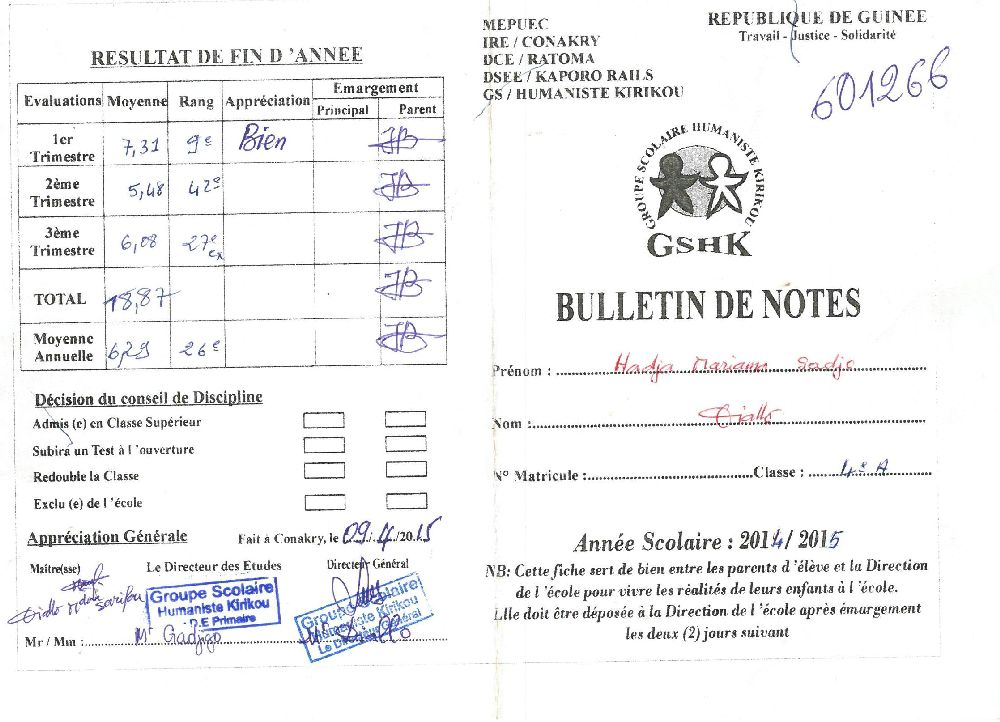 RESULTAT DE FIN D 'ANNEE
Evaluations Moyenne Rang Appréciation Emargement
Principal Parent
1er Trimestre 7,31 9e Bien
2ème Trimestre 5,48 42e
3ème Trimestre 6,08 27e ex
TOTAL 18,87
Moyenne Annuelle 6,29 26e
Décision du conseil de Discipline
Admis (e) en Classe Supérieur
Subira un Test à l 'ouverture
Redouble la Classe
Exclu (e) de l 'école
Appréciation Générale Fait à Conakry, le 09/4/2015
Maître(sse) Le Directeur des Etudes Directeur Général
Diallo
Groupe Scolaire
Humaniste Kirikou
D.E Primaire
Groupe Scolaire
Humaniste Kirikou
Le Directeur Général
Mr / Mm : Mr Gadjigo
MEPUEC
IRE / CONAKRY
DCE / RATOMA
DSEE / KAPORO RAILS
GS / HUMANISTE KIRIKOU
REPUBLIQUE DE GUINEE
Travail - Justice - Solidarité
601266
GROUPE SCOLAIRE HUMANISTE KIRIKOU
GSHK
BULLETIN DE NOTES
Prénom : Hadja Mariama Sadjo
Nom : Diallo
N° Matricule : Classe : 4e A
Année Scolaire : 2014/ 2015
NB: Cette fiche sert de bien entre les parents d 'élève et la Direction
de l 'école pour vivre les réalités de leurs enfants à l 'école.
Lle doit être déposée à la Direction de l 'école après émargement
les deux (2) jours suivant